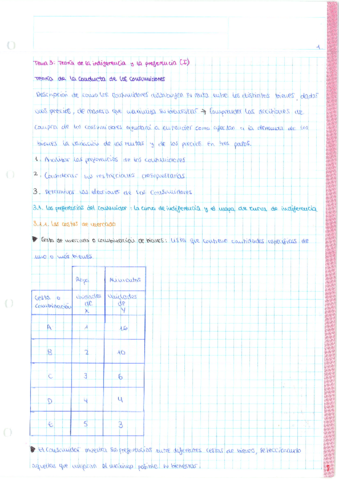 1.
Tema 3: Teoría de la indiferencia y la preferencia (I)
Teoría de la conducta de los consumidores
Descripción de como los consumidores distribuyen su renta entre los distintos bienes, dados
sus precios, de manera que maximiza su bienestar → Comprender las decisiones de
compra de los consumidores ayudará a entender como afectan a la demanda de los
bienes la variación de las rentas y de los precios
1. Analizar las preferencias de los consumidores
2. Considerar sus restricciones presupuestarias
3. Determinar las elecciones de los consumidores
3.1. Las preferencias del consumidor: la curva de indiferencia y el mapa de curvas de indiferencia
3.1.1. Las cestas de mercado
▶ Cesta de mercado o combinación de bienes: lista que contiene cantidades específicas de
uno o más bienes.
Cesta o combinación
unidades de X
unidades de Y
A 1 16
B 2 10
C 3 6
D 4 4
E 5 3
▶ El consumidor muestra sus preferencias entre diferentes cestas de bienes, seleccionando
aquella que